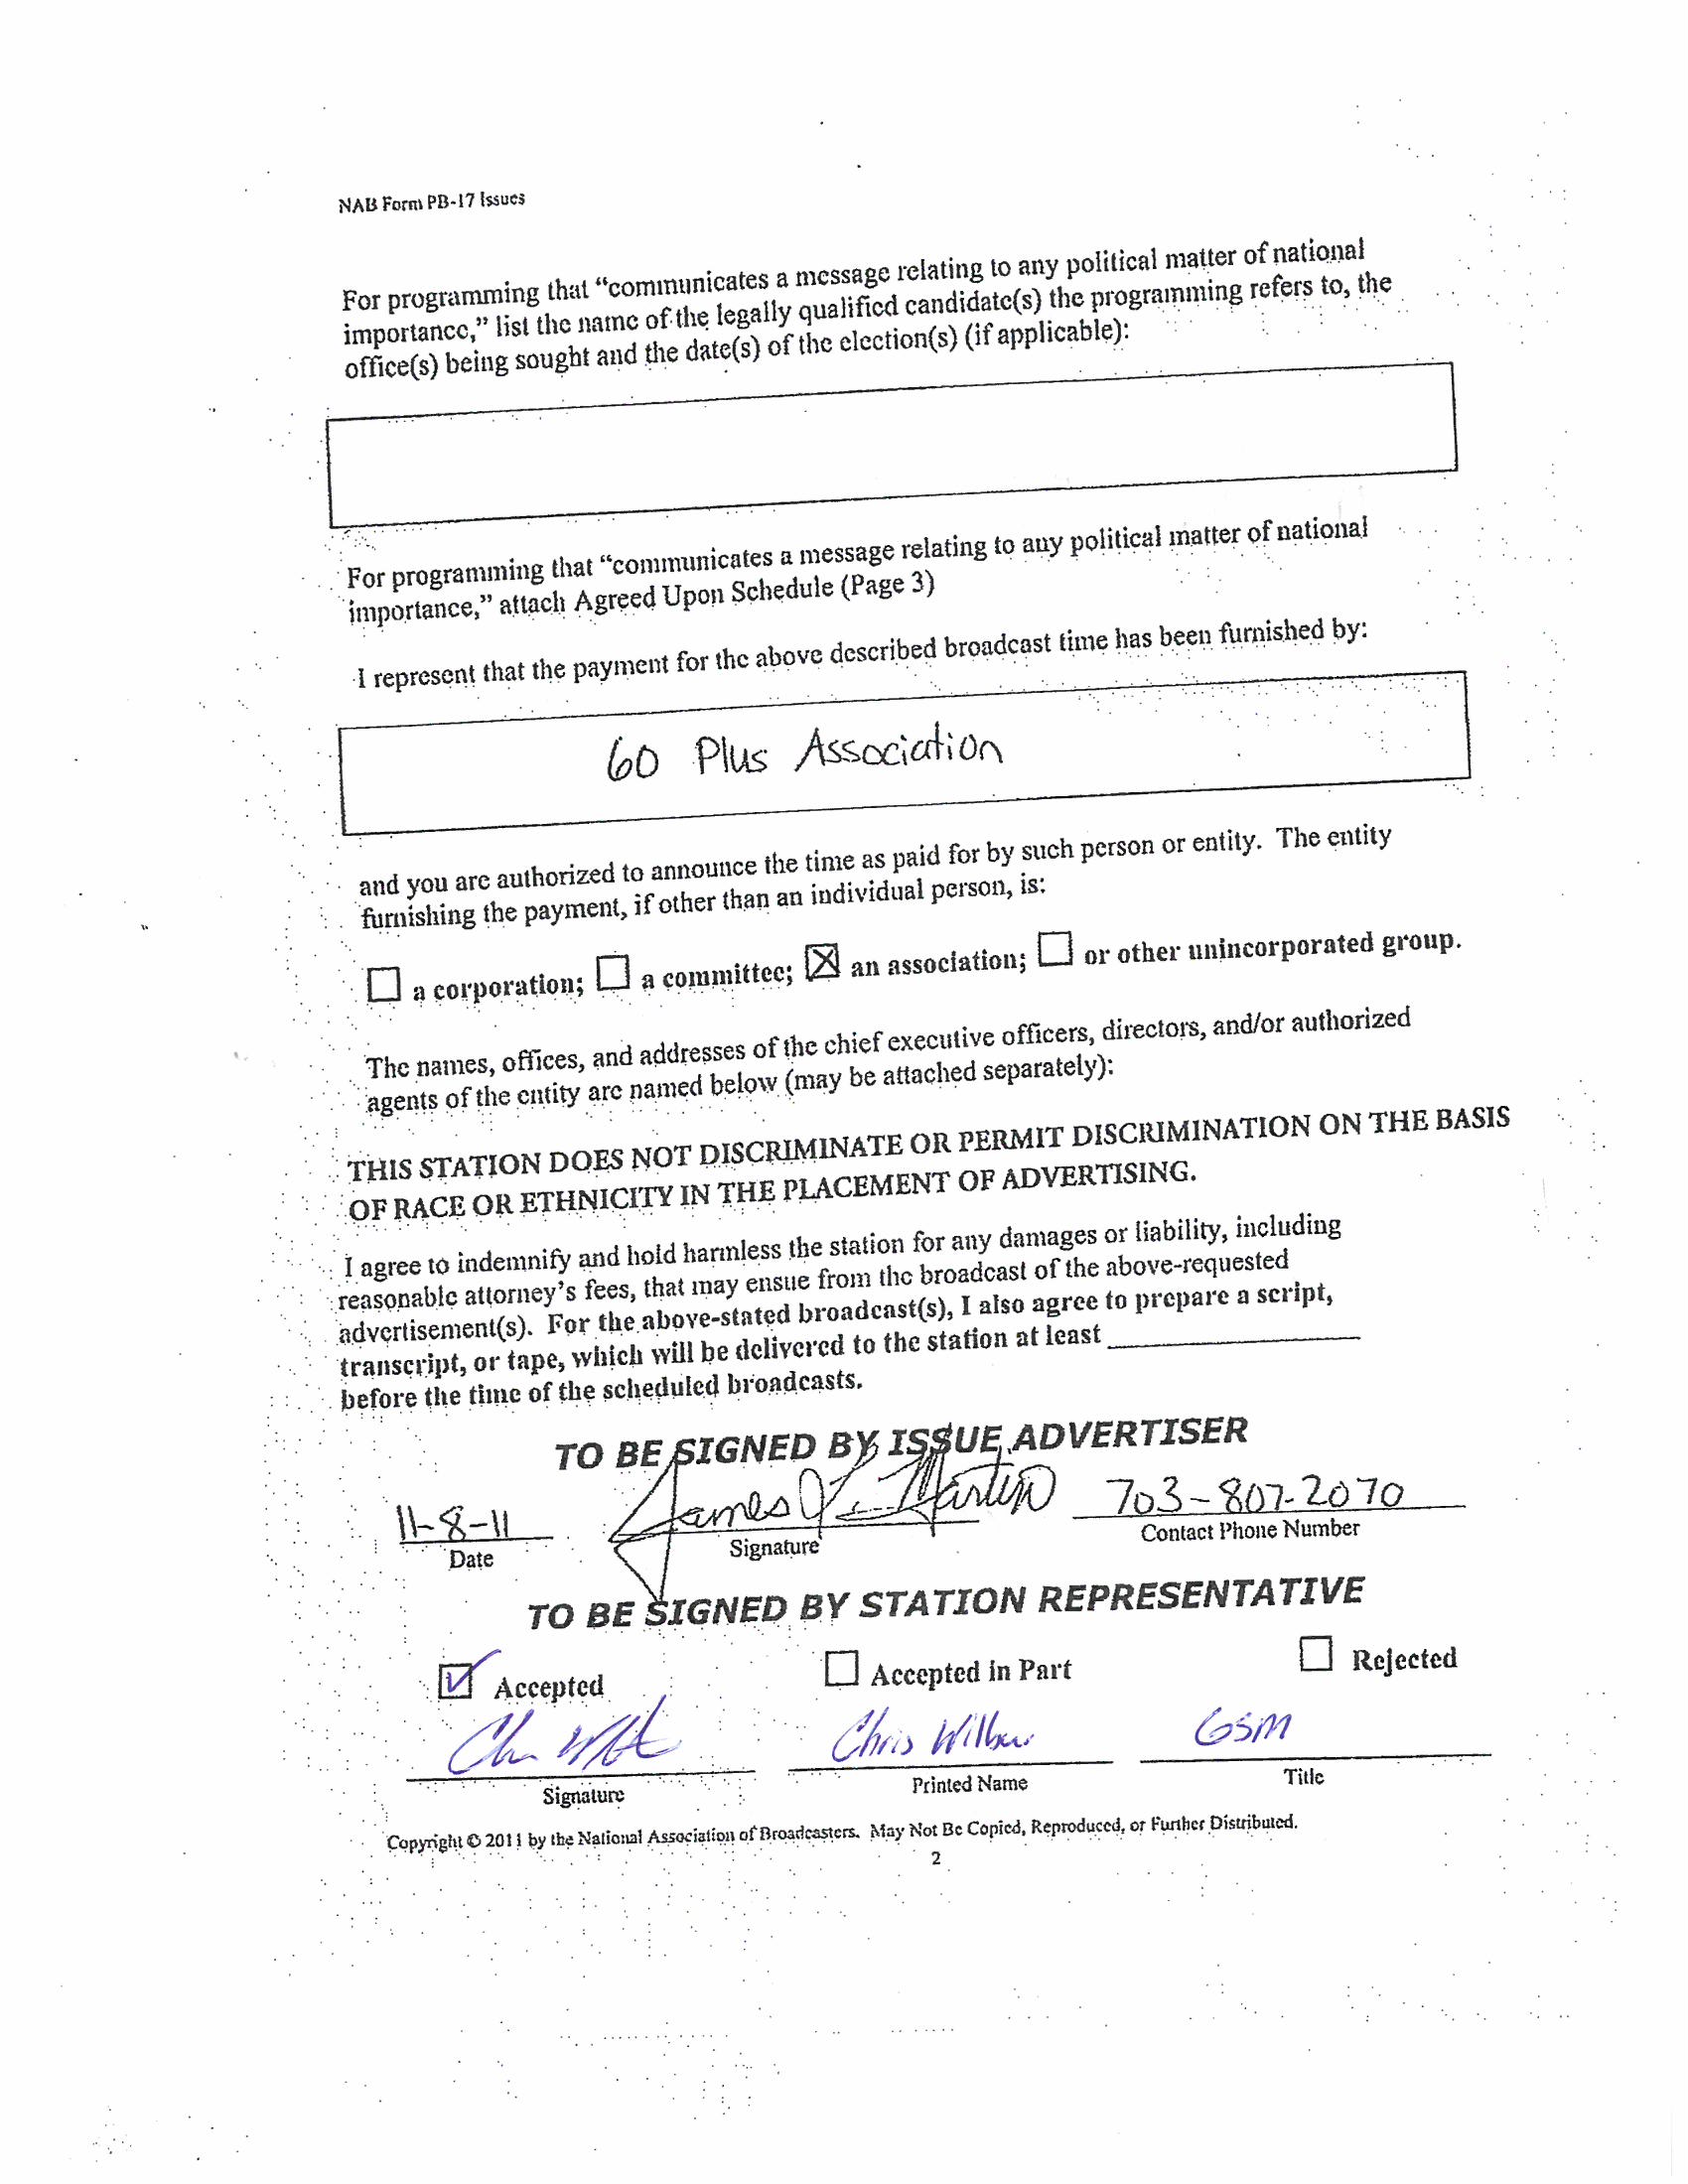 NAB Form PB-17 Issues
For programming that “communicates a message relating to any political matter of national
importance,” list the name of the legally qualified candidate(s) the programming refers to, the
office(s) being sought and the date(s) of the election(s) (if applicable):
For programming that “communicates a message relating to any political matter of national
importance,” attach Agreed Upon Schedule (Page 3)
I represent that the payment for the above described broadcast time has been furnished by:
60 Plus Association
and you are authorized to announce the time as paid for by such person or entity. The entity
furnishing the payment, if other than an individual person, is:
☐ a corporation; ☐ a committee; ☒ an association; ☐ or other unincorporated group.
The names, offices, and addresses of the chief executive officers, directors, and/or authorized
agents of the entity are named below (may be attached separately):
THIS STATION DOES NOT DISCRIMINATE OR PERMIT DISCRIMINATION ON THE BASIS
OF RACE OR ETHNICITY IN THE PLACEMENT OF ADVERTISING.
I agree to indemnify and hold harmless the station for any damages or liability, including
reasonable attorney’s fees, that may ensue from the broadcast of the above-requested
advertisement(s). For the above-stated broadcast(s), I also agree to prepare a script,
transcript, or tape, which will be delivered to the station at least
before the time of the scheduled broadcasts.
TO BE SIGNED BY ISSUE ADVERTISER
11-8-11 James L. Martin 703-807-2070
Date Signature Contact Phone Number
TO BE SIGNED BY STATION REPRESENTATIVE
☑ Accepted ☐ Accepted in Part ☐ Rejected
Chris GSM
Signature Printed Name Title
Copyright © 2011 by the National Association of Broadcasters. May Not Be Copied, Reproduced, or Further Distributed.
2